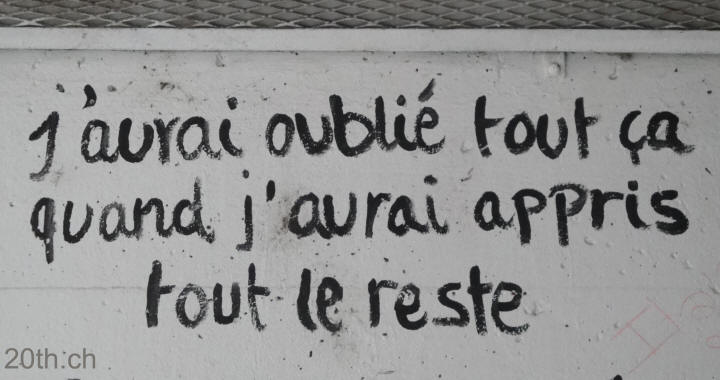 j'aurai oublié tout ça
quand j'aurai appris
tout le reste
20th.ch